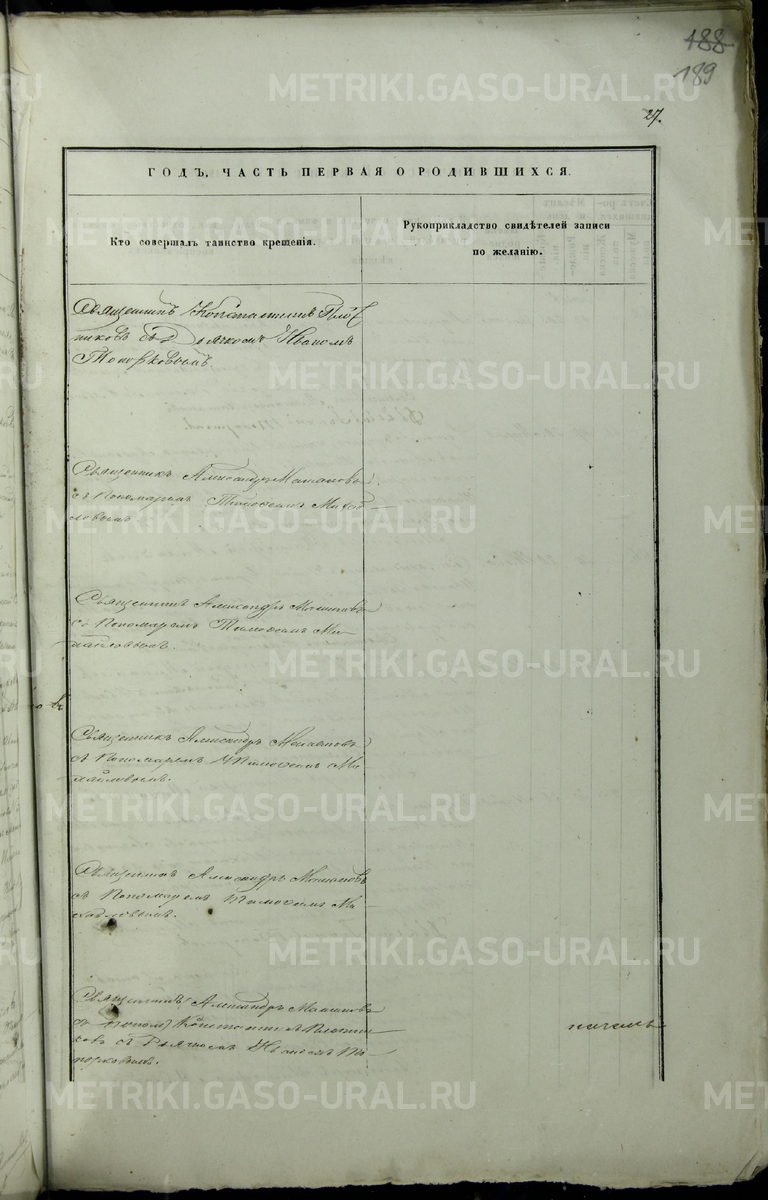 188
189
27.
ГОДЪ, ЧАСТЬ ПЕРВАЯ О РОДИВШИХСЯ.
Кто совершалъ таинство крещенія.
Рукоприкладство свидѣтелей записи
по желанію.
Священникъ Константинъ Плот-
никовъ съ Дьячкомъ Иваномъ
Топорковымъ.
Священникъ Александръ
съ Пономаремъ Тимофеемъ Михай-
ловымъ
Священникъ Александръ
съ Пономаремъ Тимофеемъ Ми-
хайловымъ.
Священникъ Александръ
съ Пономаремъ Тимофеемъ Ми-
хайловымъ.
Священникъ Александръ
съ Пономаремъ Тимофеемъ Ми-
хайловымъ.
Священникъ Александръ
Константинъ Плотни-
ковъ съ Дьячкомъ Иваномъ То-
порковымъ.
METRIKI.GASO-URAL.RU